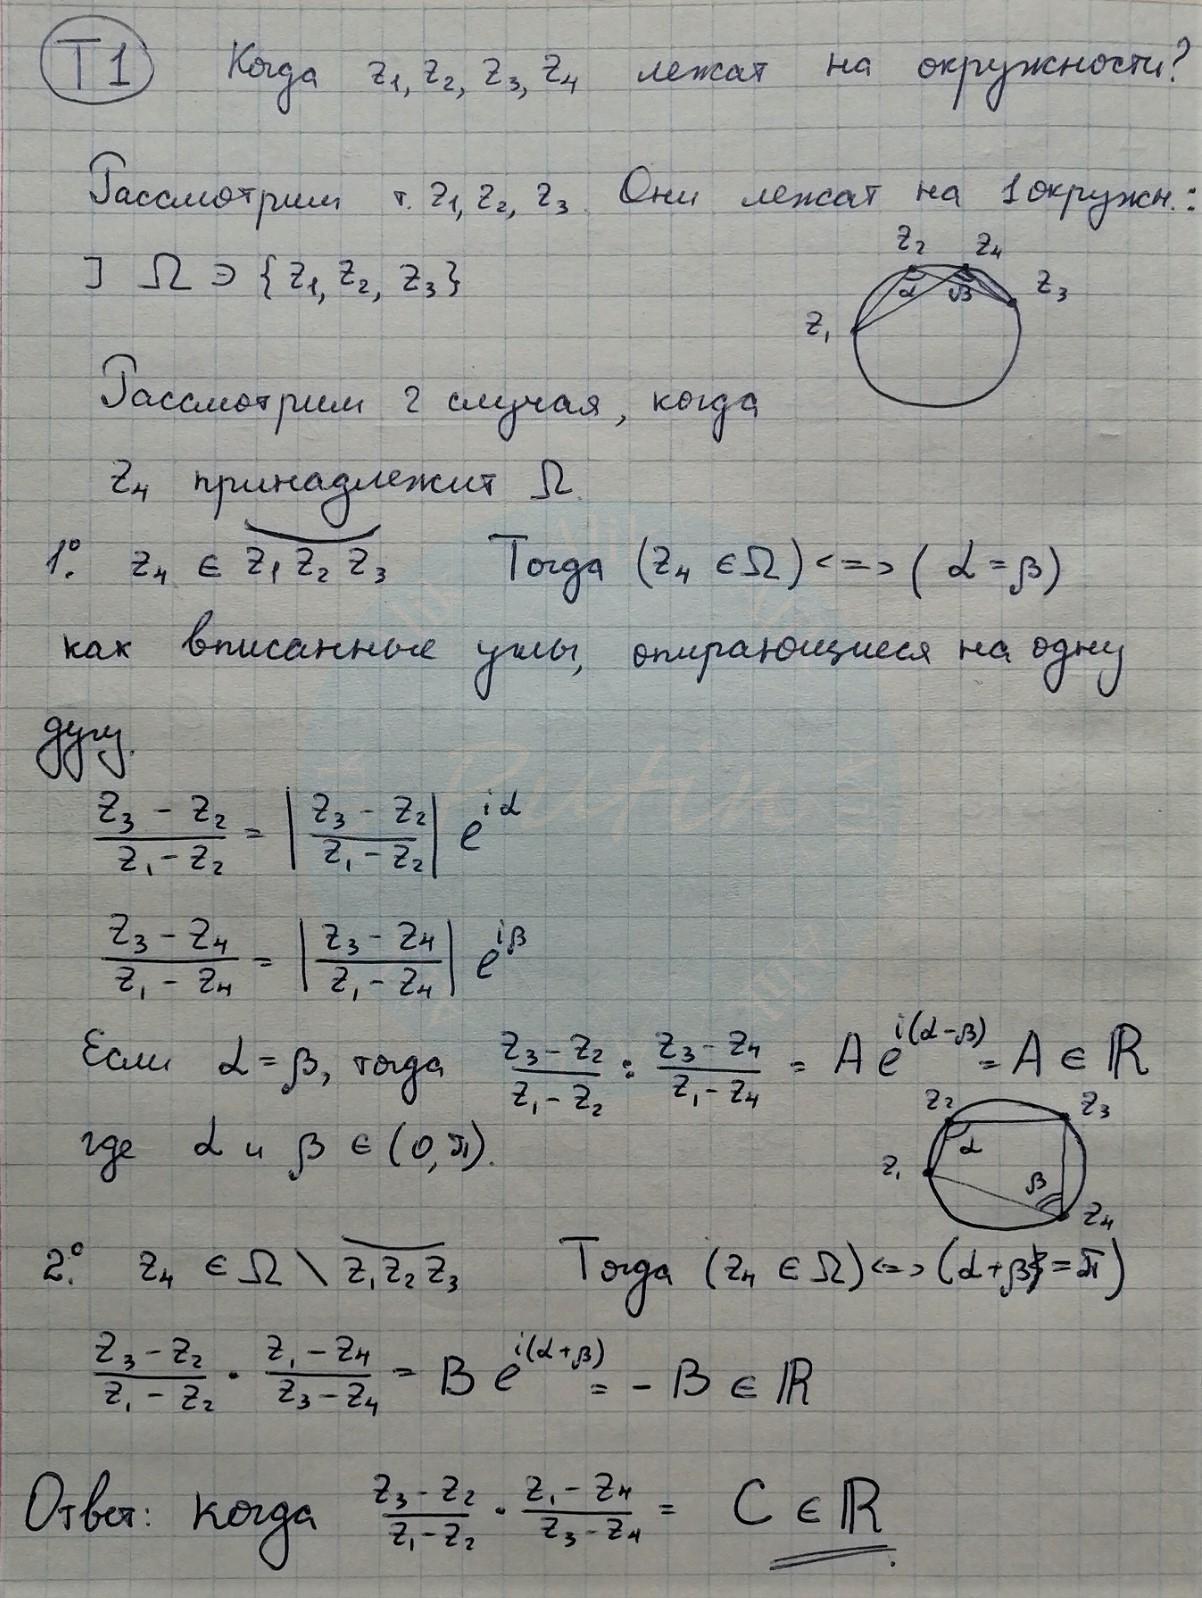 T1 Когда z₁, z₂, z₃, z₄ лежат на окружности?
Рассмотрим т. z₁, z₂, z₃. Они лежат на 1 окружн.:
] Ω ∋ {z₁, z₂, z₃}
z₂ z₄
z₁ α β z₃
Рассмотрим 2 случая, когда
z₄ принадлежит Ω.
1°. z₄ ∈ z₁ z₂ z₃ Тогда (z₄ ∈ Ω) <=> (α = β)
как вписанные углы, опирающиеся на одну
дугу.
(z₃ - z₂)/(z₁ - z₂) = |(z₃ - z₂)/(z₁ - z₂)| e^{iα}
(z₃ - z₄)/(z₁ - z₄) = |(z₃ - z₄)/(z₁ - z₄)| e^{iβ}
Если α = β, тогда (z₃ - z₂)/(z₁ - z₂) : (z₃ - z₄)/(z₁ - z₄) = A e^{i(α-β)} = A ∈ ℝ
где α и β ∈ (0, π).
z₂ z₃
z₁ α β z₄
2°. z₄ ∈ Ω \ z₁ z₂ z₃ Тогда (z₄ ∈ Ω) <=> (α + β = π)
(z₃ - z₂)/(z₁ - z₂) · (z₁ - z₄)/(z₃ - z₄) = B e^{i(α+β)} = - B ∈ ℝ
Ответ: когда (z₃ - z₂)/(z₁ - z₂) · (z₁ - z₄)/(z₃ - z₄) = C ∈ ℝ.